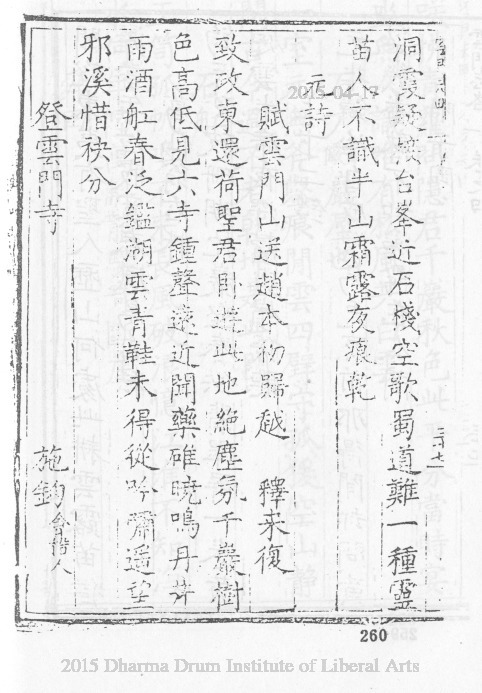 洞霞疑接台峯近石棧空歌蜀道難一種靈
苗人不識半山霜露夜痕乾
元詩
賦雲門山送趙本初歸越 釋来復
致政東還荷聖君卧遊此地絶塵氛千巖樹
色高低見六寺鍾聲遠近聞藥碓曉鳴丹井
雨酒舡春泛鑑湖雲青鞋未得從吟嘯遥望
邪溪惜袂分
登雲門寺 施鈞會稽人
2015-04-17
260
2015 Dharma Drum Institute of Liberal Arts